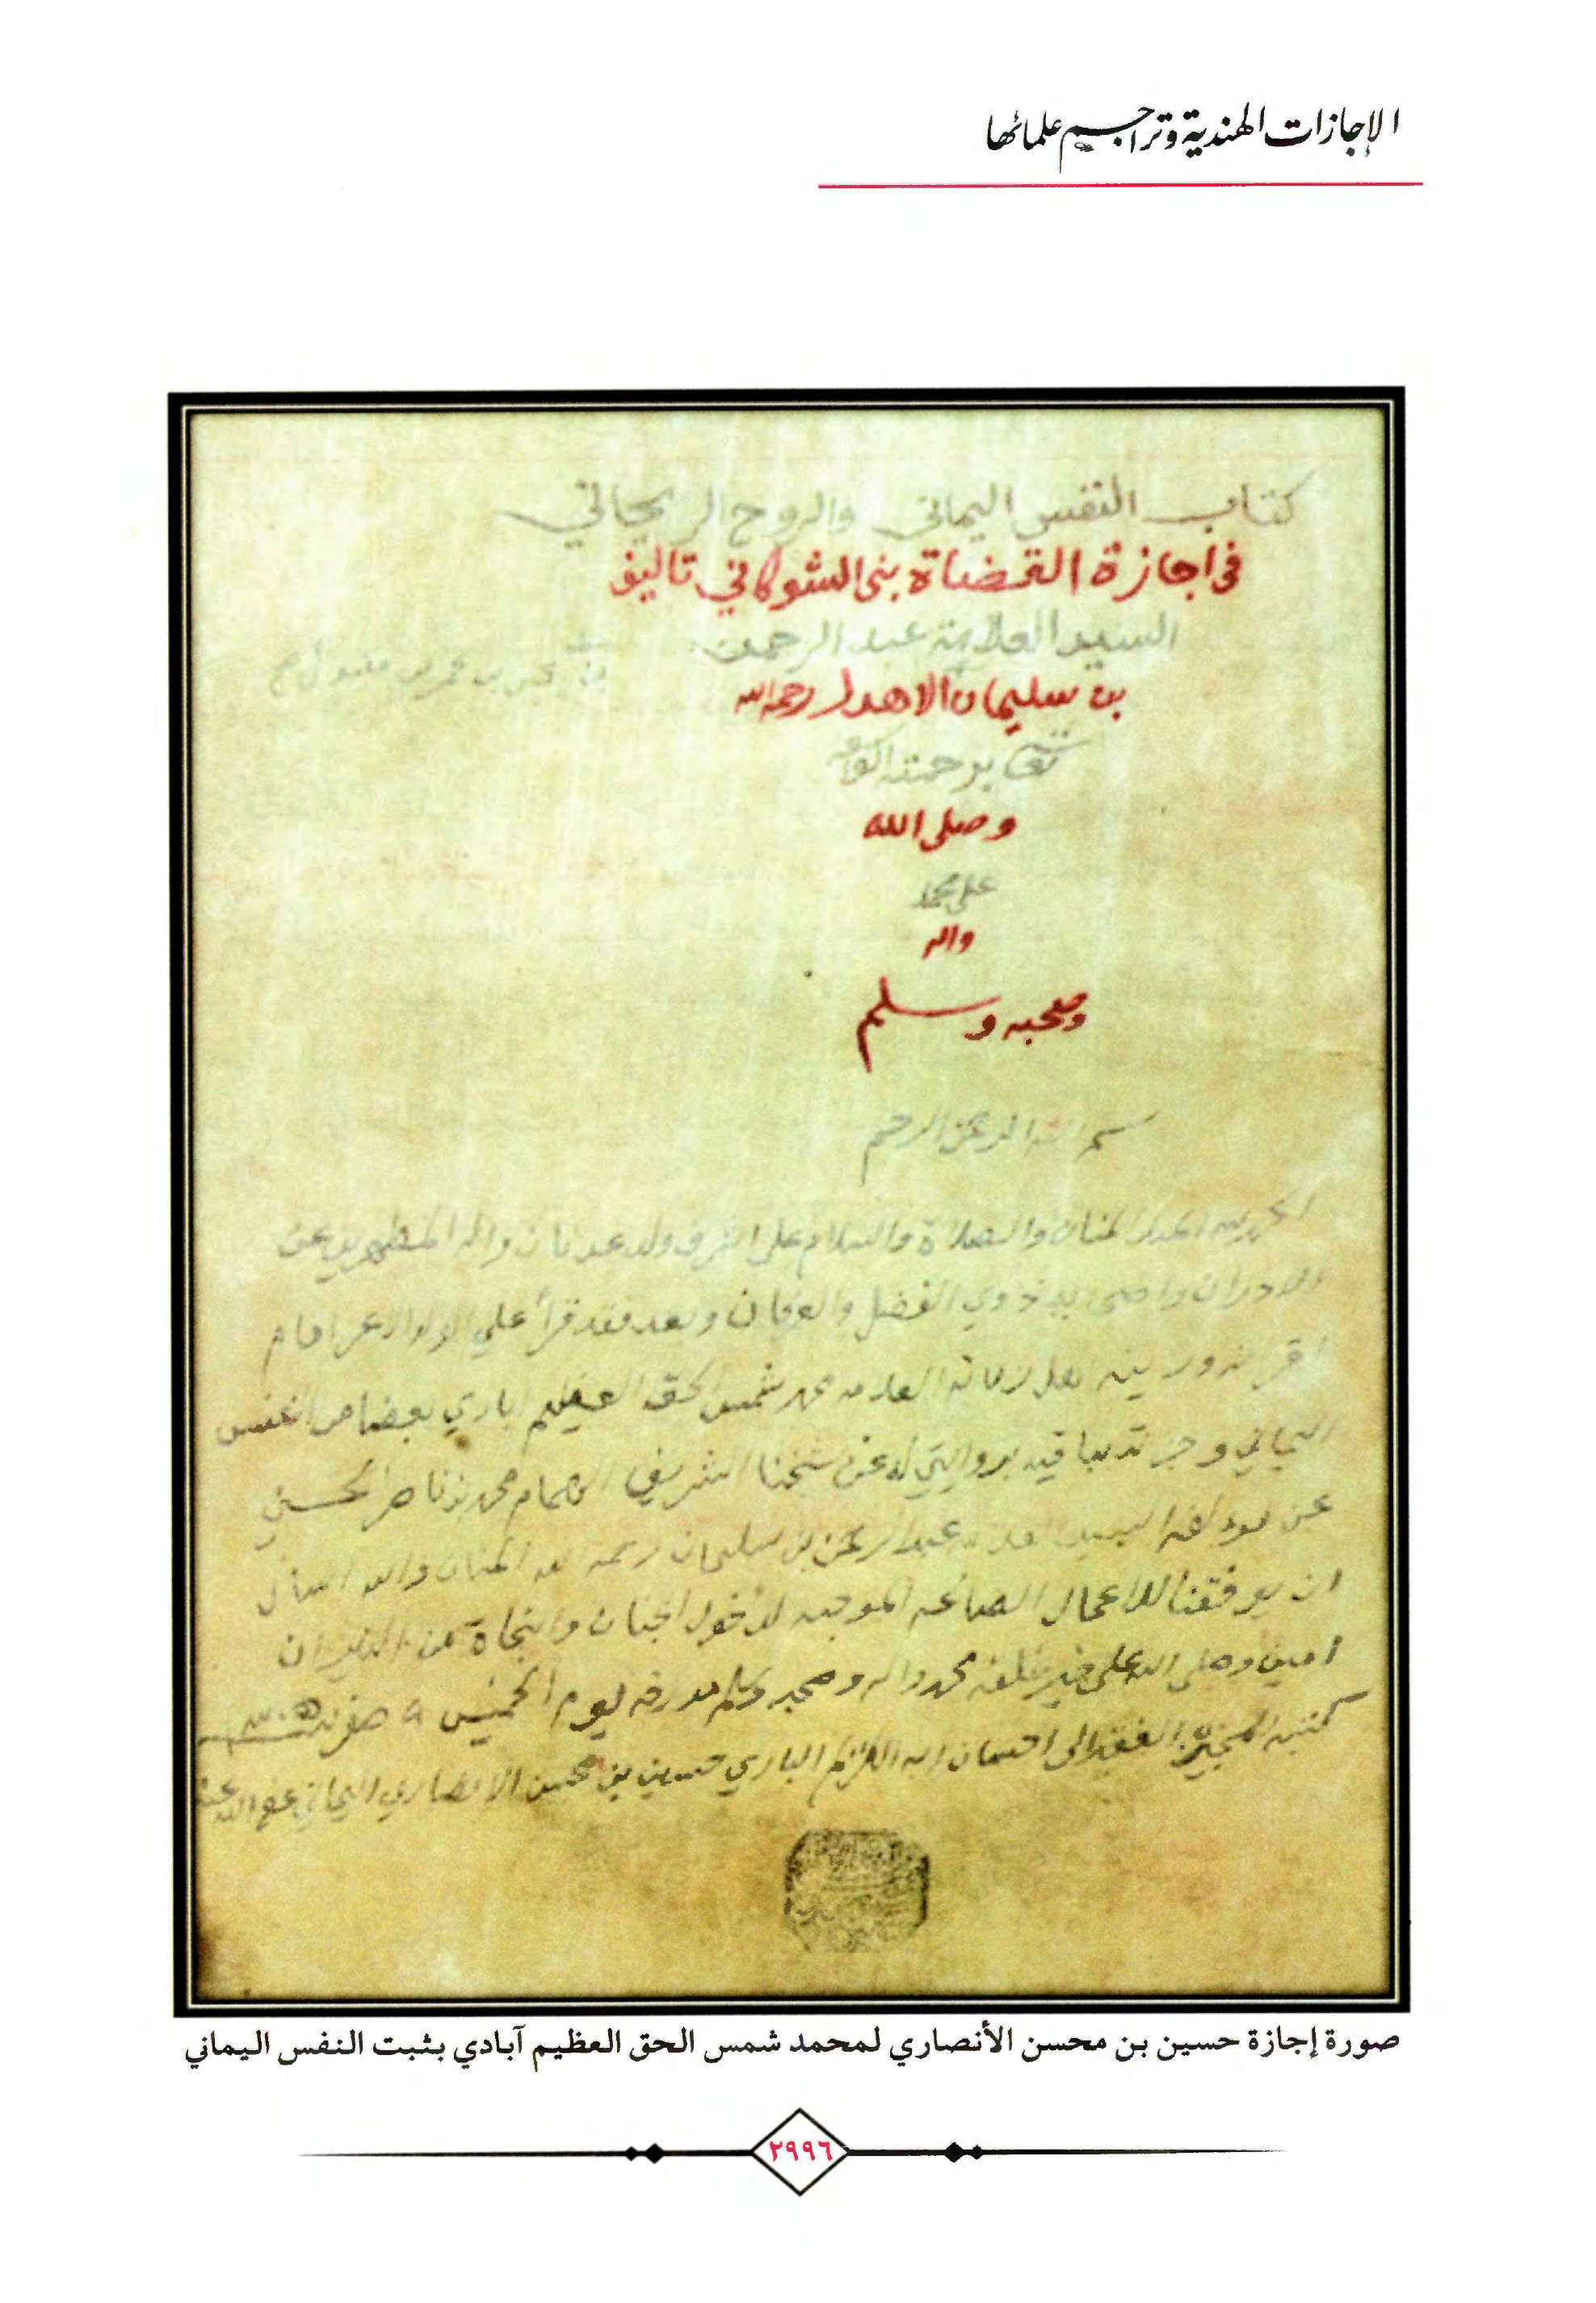 الإجازات الهندية وتراجم علمائها
كتاب النفس اليماني والروح الريحاني
في اجازة القضاة بني الشوكاني تاليف
السيد العلامة عبد الرحمن
بن سليمان الاهدل رحمه الله
وصلى الله
على محمد
واله
وصحبه وسلم
بسم الله الرحمن الرحيم
الحمد لله المنان والصلاة والسلام على اشرف ولد عدنان واله المطهرين عن
الادران واصحابه ذوي الفضل والعرفان وبعد فقد قرأ علي الولد الاعز امام
اقرانه وزينة اهل زمانه العلامه محمد شمس الحق العظيم ابادي بعضا من النفس
اليماني وجزته بما فيه بروايتي له عن شيخنا الشريف الهمام محمد بن ناصر الحسني
عن مؤلفه السيد عبد الرحمن بن سليمان رحمه الله المنان والله اسأل
ان يوفقنا للاعمال الصالحه الموجبه لدخول الجنان والنجاة من النيران
امين وصلى الله على خير خلقه محمد واله وصحبه وسلم يوم الخميس ٩ صفر
كتبه المجيز الفقير الى احسان ربه الكريم الباري حسين بن محسن الانصاري اليماني عفا الله عنه
صورة إجازة حسين بن محسن الأنصاري لمحمد شمس الحق العظيم آبادي بثبت النفس اليماني
٢٩٩٦